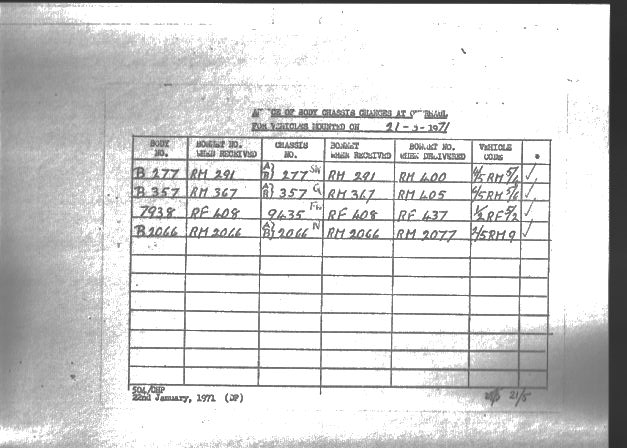 OF BODY CHASSIS CHANGES AT
FOR VEHICLES MOUNTED ON 21-5-1971
BODY NO. BONNET NO. WHEN RECEIVED CHASSIS NO. BONNET WHEN RECEIVED BONNET NO. WHEN DELIVERED VEHICLE CODE *
B 277 RM 291 A) B) 277 RM 291 RM 400 RM 5/6 ✓
B 357 RM 367 A) B) 357 G RM 367 RM 405 RM 5/6 ✓
7938 RF 408 9435 RF 408 RF 437 1/2 RF 5/2 ✓
B 2066 RM 2066 A) B) 2066 N RM 2066 RM 2077 2/5 RM 9 ✓
504/CHP
22nd January, 1971 (DP) 21/5